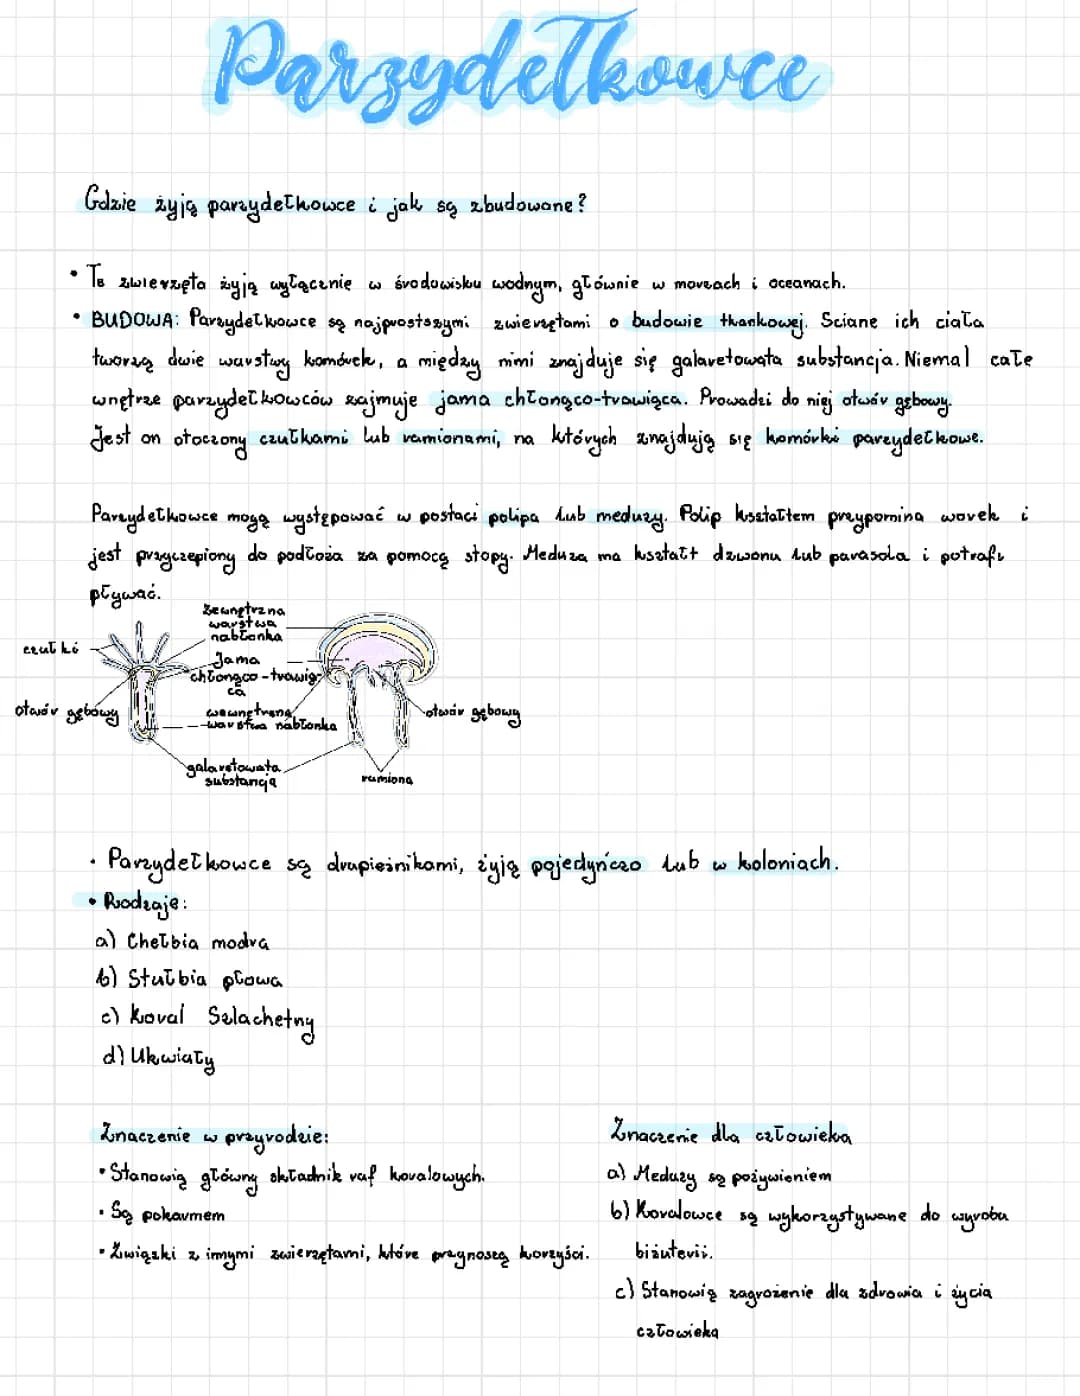 Parzydełkowce
Gdzie żyją parzydełkowce i jak są zbudowane?
• Te zwierzęta żyją wyłącznie w środowisku wodnym, głównie w morzach i oceanach.
• BUDOWA: Parzydełkowce są najprostszymi zwierzętami o budowie tkankowej. Sciane ich ciała
tworzą dwie warstwy komórek, a między nimi znajduje się galaretowata substancja. Niemal całe
wnętrze parzydełkowców zajmuje jama chłonąco-trawiąca. Prowadzi do niej otwór gębowy.
Jest on otoczony czułkami lub ramionami, na których znajdują się komórki parzydełkowe.
Parzydełkowce mogą występować w postaci polipa lub meduzy. Polip kształtem przypomina worek i
jest przyczepiony do podłoża za pomocą stopy. Meduza ma kształt dzwonu lub parasola i potrafi
pływać.
zewnętrzna
warstwa
nabłonka
czułki
Jama
chłonąco-trawią-
ca
otwór gębowy
wewnętrzna
warstwa nabłonka
otwór gębowy
galaretowata
substancja
ramiona
• Parzydełkowce są drapieżnikami, żyją pojedyńczo lub w koloniach.
• Rodzaje:
a) Chełbia modra
b) Stułbia płowa
c) Koral Szlachetny
d) Ukwiały
Znaczenie w przyrodzie:
• Stanowią główny składnik raf koralowych.
• Są pokarmem
• Związki z innymi zwierzętami, które przynoszą korzyści.
Znaczenie dla człowieka
a) Meduzy są pożywieniem
b) Koralowce są wykorzystywane do wyrobu
biżuterii.
c) Stanowią zagrożenie dla zdrowia i życia
człowieka